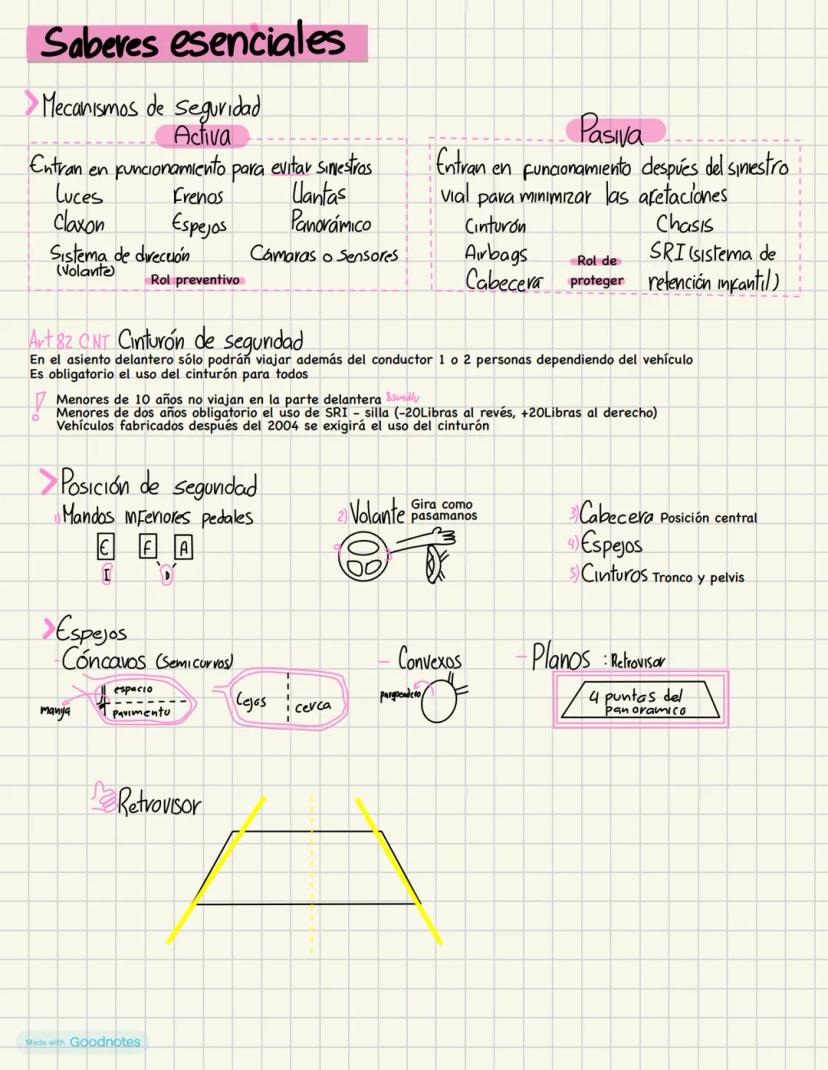 Saberes esenciales
> Mecanismos de seguridad
Activa
Entran en funcionamiento para evitar siniestros
Luces Frenos Llantas
Claxon Espejos Panorámico
Sistema de dirección Cámaras o Sensores
(Volante)
Rol preventivo
Pasiva
Entran en funcionamiento después del siniestro
vial para minimizar las afetaciones
Cinturón Chasis
Airbags SRI (sistema de
Cabecera retención infantil)
Rol de
proteger
Art 82 CNT Cinturón de seguridad
En el asiento delantero sólo podrán viajar además del conductor 1 o 2 personas dependiendo del vehículo
Es obligatorio el uso del cinturón para todos
! Menores de 10 años no viajan en la parte delantera
Menores de dos años obligatorio el uso de SRI - silla (-20Libras al revés, +20Libras al derecho)
Vehículos fabricados después del 2004 se exigirá el uso del cinturón
> Posición de seguridad
1) Mandos inferiores pedales
E F A
I D
2) Volante Gira como
pasamanos
3) Cabecera Posición central
4) Espejos
5) Cinturos Tronco y pelvis
> Espejos
- Cóncavos (Semicurvos)
manija
espacio
pavimento
Lejos cerca
- Convexos
- Planos : Retrovisor
4 puntos del
panoramico
Retrovisor
Made with Goodnotes